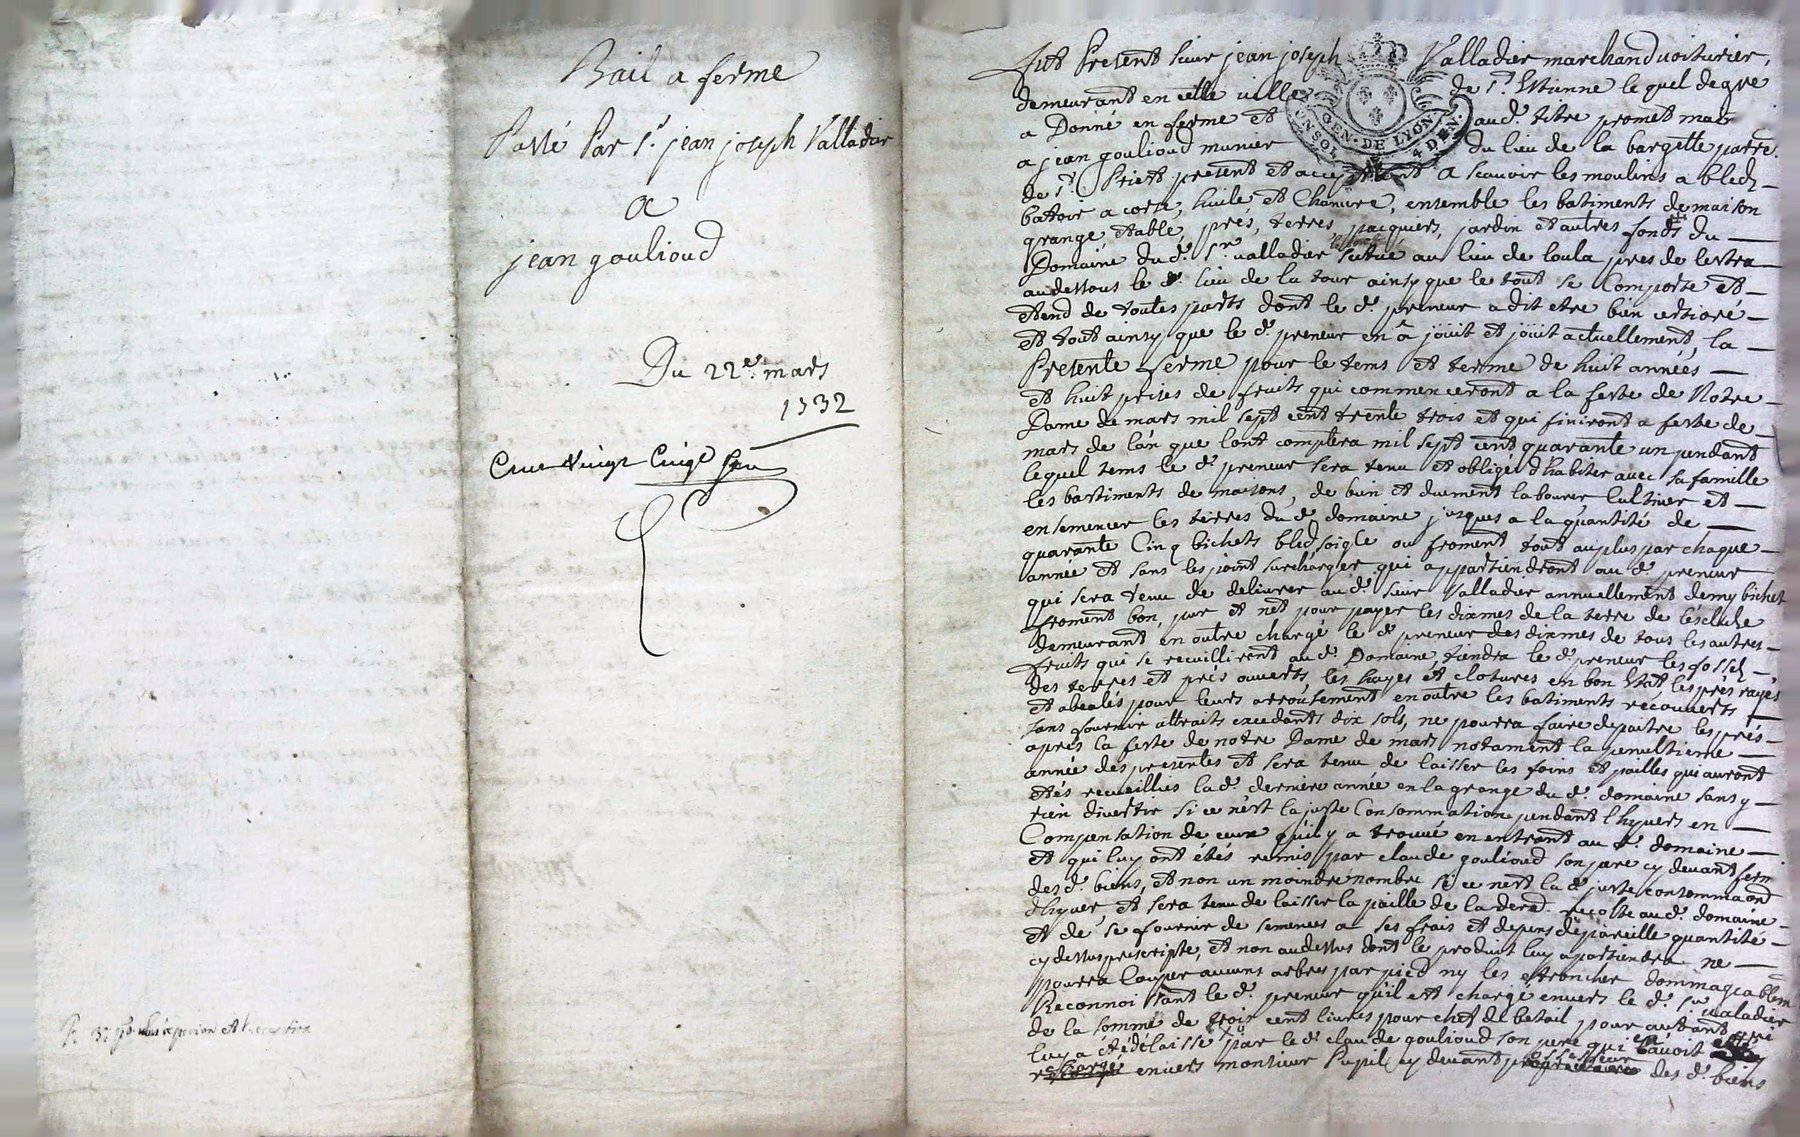 Bail a ferme
Passé Par Sr. jean joseph Valladier
a
jean goulioud
Du 22e. mars
1732
Cent vingt Cinq
GEN. DE LYON
4 DEN.
Fut Present sieur jean joseph Valladier marchand voiturier,
demeurant en cette ville de St. Estienne lequel de gré
a Donné en ferme et aud. titre promet
a jean goulioud munier du lieu de la bargette parre.
de St. Priest present et acceptant A scavoir les moulins a bled,
battoir a corse, huile et Chanvre, ensemble les batiments de maison
grange, etable, prés, terres, pacquiers, jardin et autres fonds du
Domaine du d. Sr. valladier situé au lieu de loula pres de lestra
audessous le d. lieu de la tour ainsy que le tout se Comporte et
etend de toutes parts dont le d. preneur a dit etre bien certioré
et tout ainsy que le d. preneur en a joüit et joüit actuellement, la
Presente ferme pour le tems et terme de huit années
et huit prises de fruits qui commenceront a la feste de Notre
Dame de mars mil sept cent trente trois et qui finiront a feste de
mars de lan que lont comptera mil sept cent quarante un pendant
lequel tems le d. preneur sera tenu et obligé d'habiter avec sa famille
les bastiments de maisons, de bien et duement labourer Cultiver et
ensemencer les terres du d. domaine jusques a la quantité de
quarante Cinq bichets bled soigle ou froment tout au plus par chaque
année et sans les point surcharger qui appartiendront au d. preneur
qui sera tenu de delivrer au d. sieur Valladier annuellement demy bichet
froment bon, pur et net pour payer les dixmes de la terre de
demeurant en outre chargé le d. preneur des dixmes de tous les autres
fruits qui se recuilliront au d. Domaine, tiendra le d. preneur les fossés
des terres et prés ouverts, les hayes et clotures en bon Etat, les prés rayés
et abealés pour leurs arrousement en outre les batiments recouverts
sans fournir attraits excedants dix sols, ne pourra faire depaitre les prés
aprés la feste de notre Dame de mars notament la penultieme
année des presentes et sera tenu de laisser les foins et pailles qui auront
étés recueillies la d. derniere année en la grange du d. domaine sans y
rien divertir si ce n'est la juste Consommation pendant l'hyvers en
Compensation de ceux qu'il y a trouvé en entrant au d. domaine
et qui luy ont étés remis par claude goulioud son pere cy devant ferm
des d. biens, et non un moindre nombre si ce n'est la d. juste consommaon
d'hyver et sera tenu de laisser la paille de la dere d. recolte au d. domaine
et de se fournir de semences a ses frais et depens de pareille quantité
cy dessus prescripte, et non audessus dont le produit luy apartiendra ne
pourra Couper aucuns arbres par pied ny les etroncher dommageablem
Reconnoissant le d. preneur qu'il est chargé envers le d. Sr. valadier
de la somme de trois cent livres pour chef de betail pour autant
luy a été délaissé par le d. claude goulioud son pere qui en avoit
chargé envers monsieur Pupil cy devant possesseur des d. biens